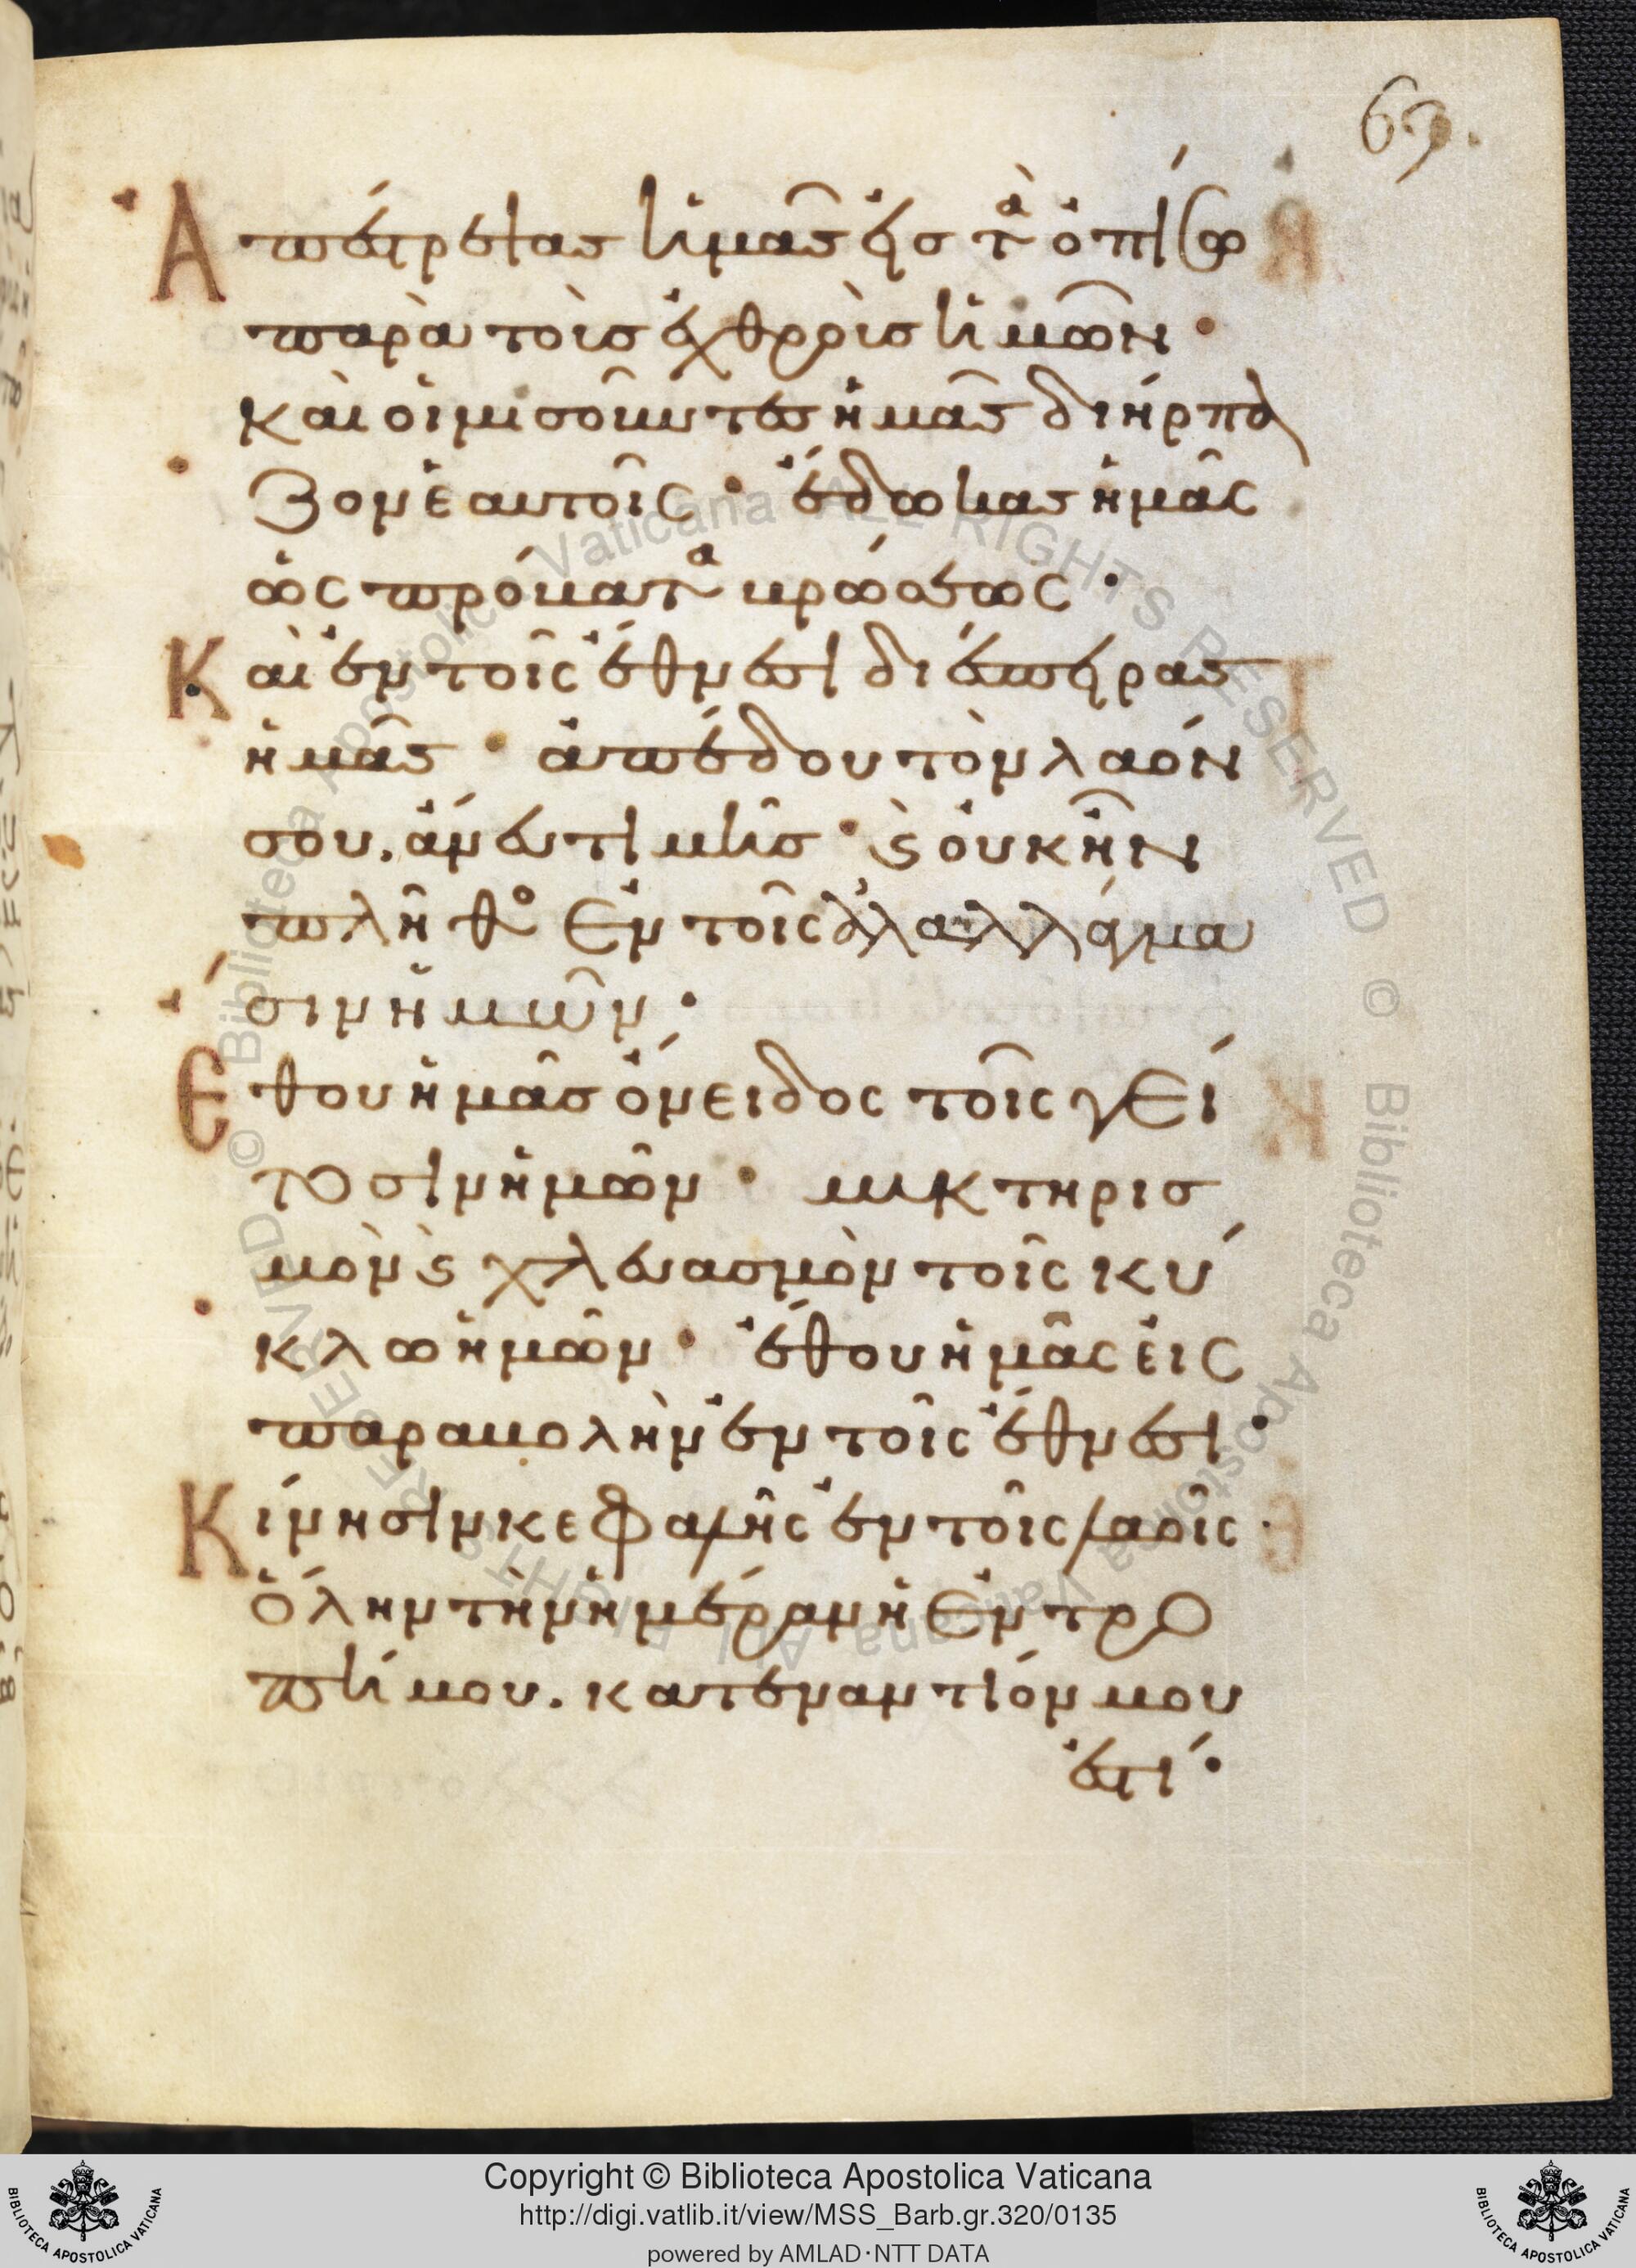 69.
Ἀπέστρεψας ἡμᾶς εἰς τὰ ὀπίσω
παρὰ τοὶς ἐχθροὶς ἡμῶν·
καὶ οἱ μισοῦντες ἡμᾶς διήρπα
ζον ἑαυτοῖς· ἔδωκας ἡμᾶς
ὡς πρόβατα βρώσεως·
Καὶ ἐν τοῖς ἔθνεσι διέσπειρας
ἡμᾶς· ἀπέδου τὸν λαόν
σου. ἄνευ τιμῆς· ϛ οὐκ ἦν
πλῆθο ἐν τοῖς ἀλαλλάγμα
σιν ἡμῶν·
Ἔθου ἡμᾶς ὄνειδος τοῖς γεί
τοσιν ἡμῶν· μυκτηρισ
μὸν ϛ χλευασμὸν τοῖς κύ
κλω ἡμῶν· ἔθου ἡμᾶς εἰς
παραβολὴν ἐν τοῖς ἔθνεσι·
Κίνησιν κεφαλῆς ἐν τοῖς λαοῖς·
ὅλην τὴν ἡμέραν ἡ ἐντρο
πή μου. κατεναντιόν μου
ἐστί·
© Biblioteca Apostolica Vaticana ALL RIGHTS RESERVED © Biblioteca Apostolica Vaticana ALL RIGHTS RESERVED
Copyright © Biblioteca Apostolica Vaticana
http://digi.vatlib.it/view/MSS_Barb.gr.320/0135
powered by AMLAD·NTT DATA
BIBLIOTECA APOSTOLICA VATICANA
BIBLIOTECA APOSTOLICA VATICANA